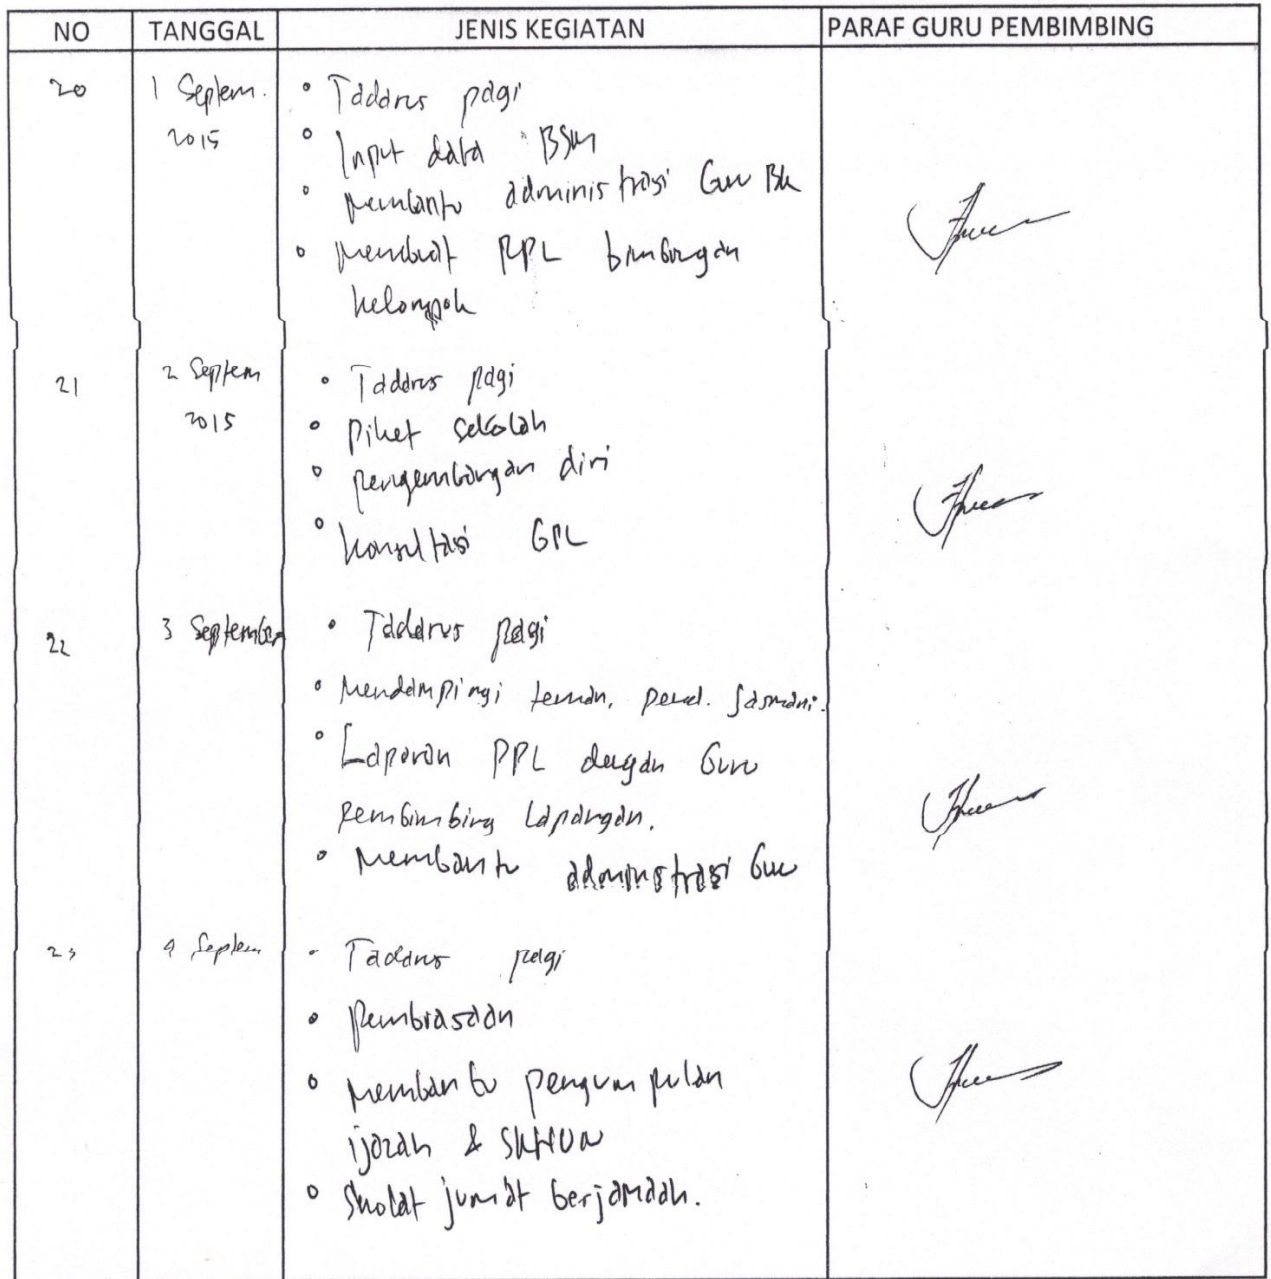 NO TANGGAL JENIS KEGIATAN PARAF GURU PEMBIMBING
20 1 Septem. • Taddrus pagi
2015 • Input data BSM
• membantu administrasi Guru BK
• membuat RPL bimbingan
kelompok
21 2 Septem • Taddrus pagi
2015 • piket sekolah
• pengembangan diri
• konsultasi GPL
22 3 September • Taddrus pagi
• Mendampingi teman, pend. Jasmani.
• Laporan PPL dengan Guru
Pembimbing Lapangan.
• Membantu administrasi Guru
23 4 Septem - Taddrus pagi
• Pembiasaan
• Membantu pengumpulan
ijazah & SKHUN
• Sholat jum'at berjamaah.